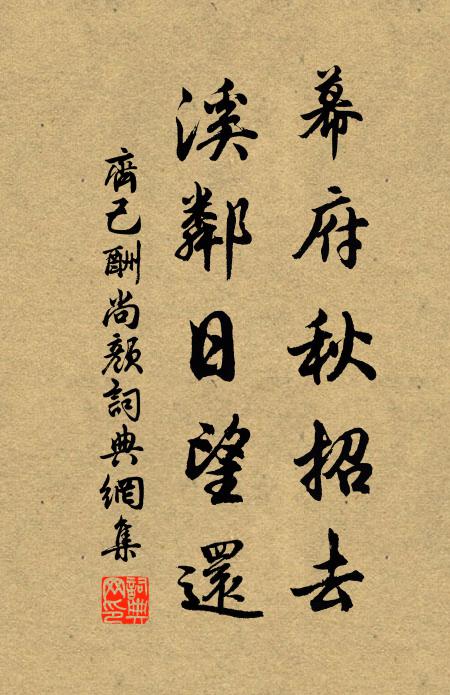 幕府秋招去
溪鄰日望還
齊己酬尚顏詞典網集
詞典網印